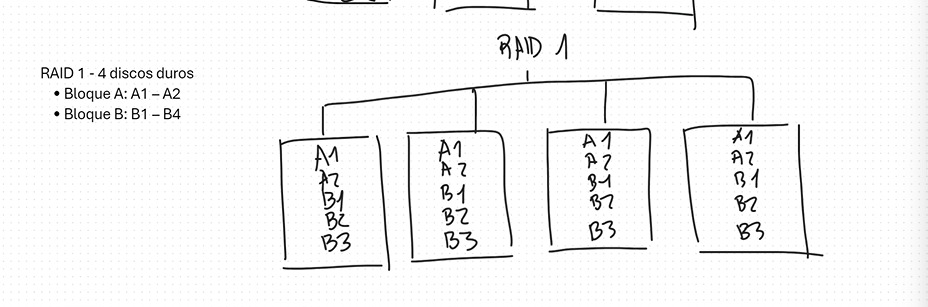 RAID 1
RAID 1 - 4 discos duros
• Bloque A: A1 – A2
• Bloque B: B1 – B4
A1
A2
B1
B2
B3
A1
A2
B1
B2
B3
A1
A2
B1
B2
B3
A1
A2
B1
B2
B3